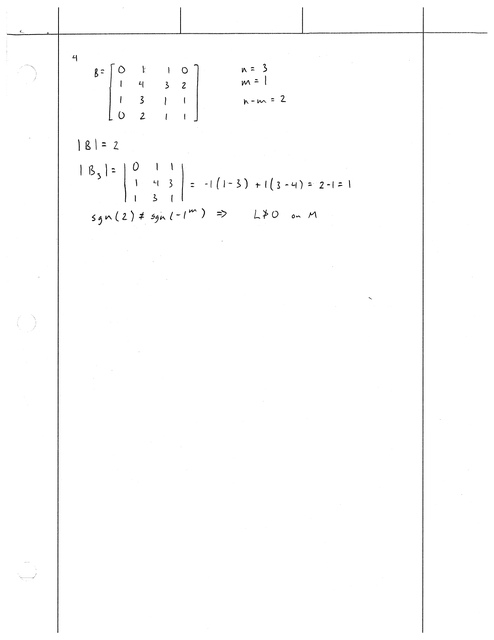 4
B = [ 0 1 1 0
1 4 3 2
1 3 1 1
0 2 1 1 ]
n = 3
m = 1
n-m = 2
|B| = 2
|B₃| = | 0 1 1
1 4 3
1 3 1 | = -1(1-3) + 1(3-4) = 2-1 = 1
sgn(2) ≠ sgn(-1^m) ⇒ L≯0 on M